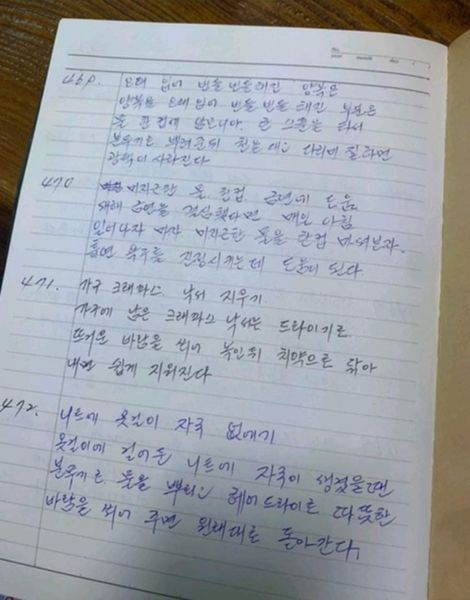 469. 오래 입어 번들번들해진 양복은
양복을 오래 입어 번들번들 해진 부분은
물 한컵에 암모니아 한 스푼을 타서
분무기로 뿌려준뒤 천을 대고 다리미 질하면
광택이 사라진다
470 미지근한 물 한컵 금연에 도움
새해 금연을 결심했다면 매일 아침
일어나자 마자 미지근한 물을 한컵 마셔보자.
흡연 욕구를 진정시키는데 도움이 된다
471. 가구 크레파스 낙서 지우기
가구에 남은 크레파스 낙서는 드라이기로
뜨거운 바람을 쐬어 녹인뒤 치약으로 닦아
내면 쉽게 지워진다
472. 니트에 옷걸이 자국 없애기
옷걸이에 걸어둔 니트에 자국이 생겼을땐
분무기로 물을 뿌리고 헤어드라이로 따뜻한
바람을 쐬어 주면 원래대로 돌아간다.